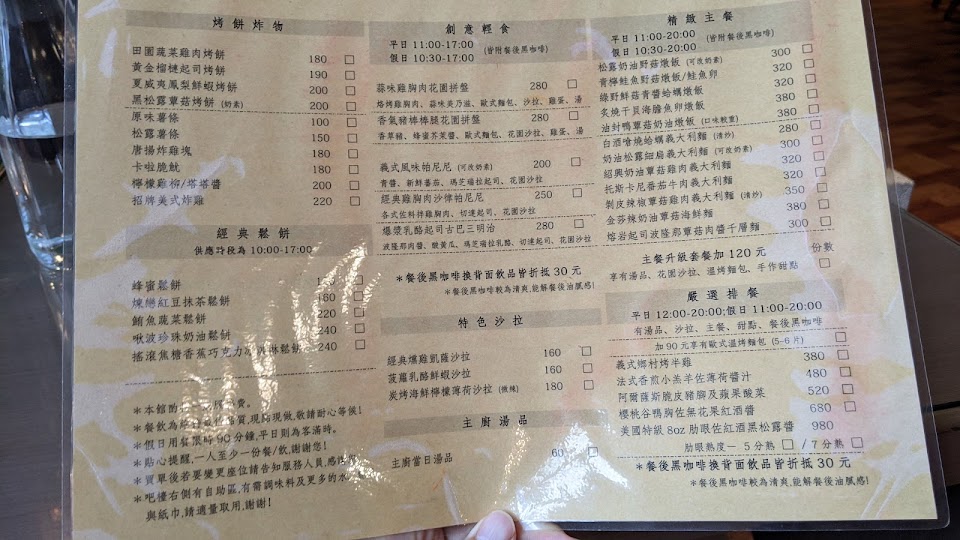 烤餅炸物
田園蔬菜雞肉烤餅 180 □
黃金榴槤起司烤餅 190 □
夏威夷鳳梨鮮蝦烤餅 200 □
黑松露蕈菇烤餅 (奶素) 200 □
原味薯條 100 □
松露薯條 150 □
唐揚炸雞塊 180 □
卡啦脆魷 180 □
檸檬雞柳/塔塔醬 200 □
招牌美式炸雞 220 □
經典鬆餅
供應時段為 10:00-17:00
蜂蜜鬆餅 □
煉戀紅豆抹茶鬆餅 180 □
鮪魚蔬菜鬆餅 220 □
啾波珍珠奶油鬆餅 240 □
搖滾焦糖香蕉巧克力冰淇淋鬆餅 240 □
＊本館酌
＊餐飲為 質,現點現做,敬請耐心等候!
＊假日用餐限時90分鐘,平日則為客滿時。
＊貼心提醒,一人至少一份餐/飲,謝謝您!
＊買單後若要變更座位請告知服務人員,感
＊吧檯右側有自助區,有需調味料及更多的水
與紙巾,請適量取用,謝謝!
創意輕食
平日 11:00-17:00 (皆附餐後黑咖啡)
假日 10:30-17:00
蒜味雞胸肉花園拼盤 280 □
烙烤雞胸肉、蒜味美乃滋、歐式麵包、沙拉、雞蛋、湯
香氣豬棒棒腿花園拼盤 280 □
香草豬、蜂蜜芥茉醬、歐式麵包、花園沙拉、雞蛋、湯
義式風味帕尼尼 (可改奶素) 200 □
青醬、新鮮番茄、瑪芝瑞拉起司、花園沙拉
經典雞胸肉沙悖帕尼尼 250 □
各式佐料拌雞胸肉、切達起司、花園沙拉
爆漿乳酪起司古巴三明治 280 □
波隆那肉醬、酸黃瓜、瑪芝瑞拉乳酪、切達起司、花園沙拉
＊餐後黑咖啡換背面飲品皆折抵 30 元
＊餐後黑咖啡較為清爽,能解餐後油膩感!
特色沙拉
經典燻雞凱薩沙拉 160 □
菠蘿乳酪鮮蝦沙拉 160 □
炭烤海鮮檸檬薄荷沙拉 (微辣) 180 □
主廚湯品
主廚當日湯品 60 □
精緻主餐
平日 11:00-20:00 (皆附餐後黑咖啡)
假日 10:30-20:00
松露奶油野菇燉飯 (可改奶素) 300 □
青檸鮭魚野菇燉飯/鮭魚卵 320 □
綠野鮮菇青醬蛤蠣燉飯 320 □
炙燒干貝海膽魚卵燉飯 380 □
油封鴨蕈菇奶油燉飯 (口味較重) 380 □
白酒嗆燒蛤蠣義大利麵 (清炒) 280 □
奶油松露細扁義大利麵 (可改奶素) 300 □
紹興奶油蕈菇雞肉義大利麵 320 □
托斯卡尼番茄牛肉義大利麵 320 □
剝皮辣椒蕈菇雞肉義大利麵 (清炒) 350 □
金莎燒奶油蕈菇海鮮麵 380 □
熔岩起司波隆那蕈菇肉醬千層麵 300 □
主餐升級套餐加 120 元 份數
享有湯品、花園沙拉、溫烤麵包、手作甜點 □
嚴選排餐
平日 12:00-20:00;假日 11:00-20:00
有湯品、沙拉、主餐、甜點、餐後黑咖啡
加 90 元享有歐式溫烤麵包 (5-6片) □
義式鄉村烤半雞 380 □
法式香煎小羔羊佐薄荷醬汁 480 □
阿爾薩斯脆皮豬腳及蘋果酸菜 520 □
櫻桃谷鴨胸佐無花果紅酒醬 680 □
美國特級 8oz 肋眼佐紅酒黑松露醬 980
肋眼熟度— 5分熟 □ / 7分熟 □
＊餐後黑咖啡換背面飲品皆折抵 30 元
＊餐後黑咖啡較為清爽,能解餐後油膩感!